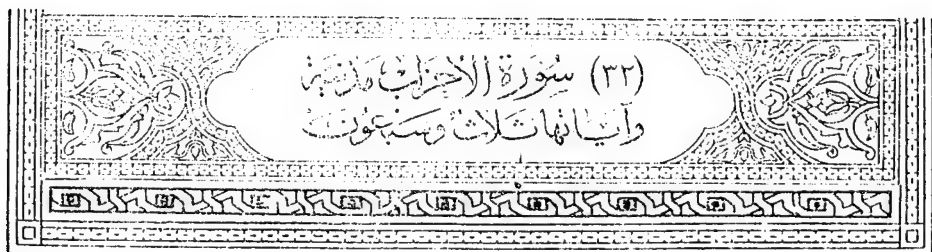 (٣٢) سورة الأحزاب مدنية
وآياتها ثلاث وسبعون